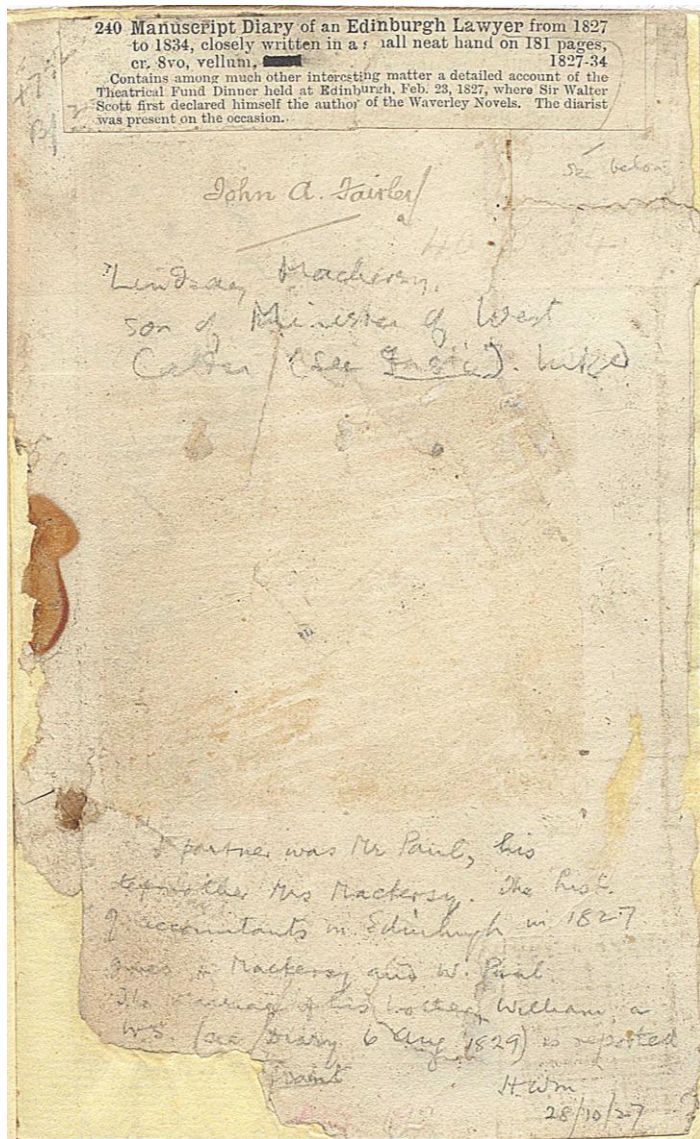 240 Manuscript Diary of an Edinburgh Lawyer from 1827
to 1834, closely written in a s all neat hand on 181 pages,
cr. 8vo, vellum, 1827-34
Contains among much other interesting matter a detailed account of the
Theatrical Fund Dinner held at Edinburgh, Feb. 23, 1827, where Sir Walter
Scott first declared himself the author of the Waverley Novels. The diarist
was present on the occasion.
see below
John A. Fairley
Lindsay Mackersy,
son of Minister of West
Calder (see
partner was Mr Paul, his
stepmother Mrs Mackersy. The list
of accountants in Edinburgh in 1827
gives L. Mackersy and W. Paul
The marriage of his brother, William, a
W.S. (see Diary 6 Aug 1829) is reported
H.W.M
28/10/27